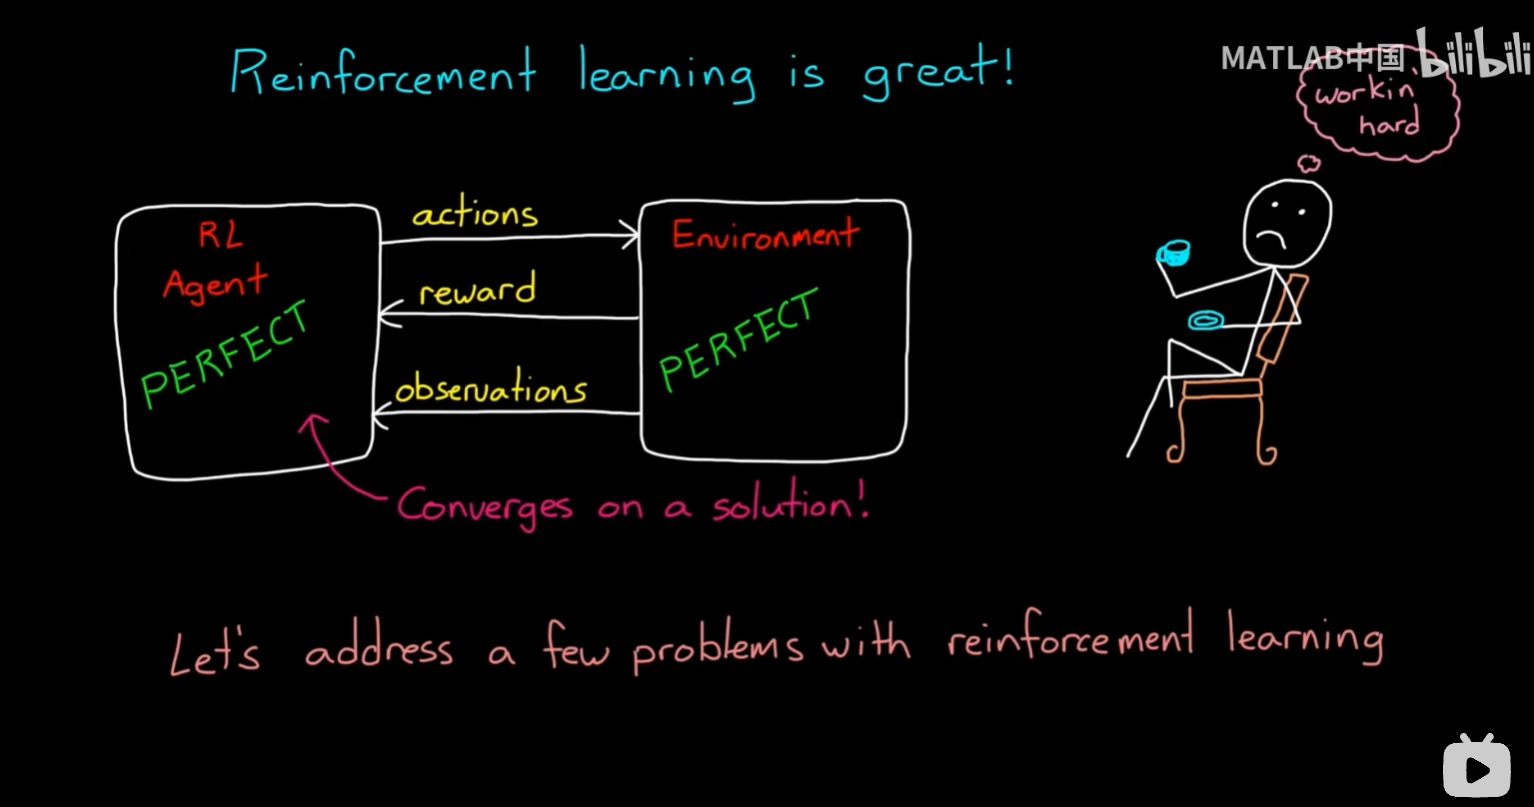 Reinforcement learning is great!
MATLAB中国 bilibili
workin'
hard
RL
Agent
PERFECT
actions
reward
observations
Environment
PERFECT
Converges on a solution!
Let's address a few problems with reinforcement learning